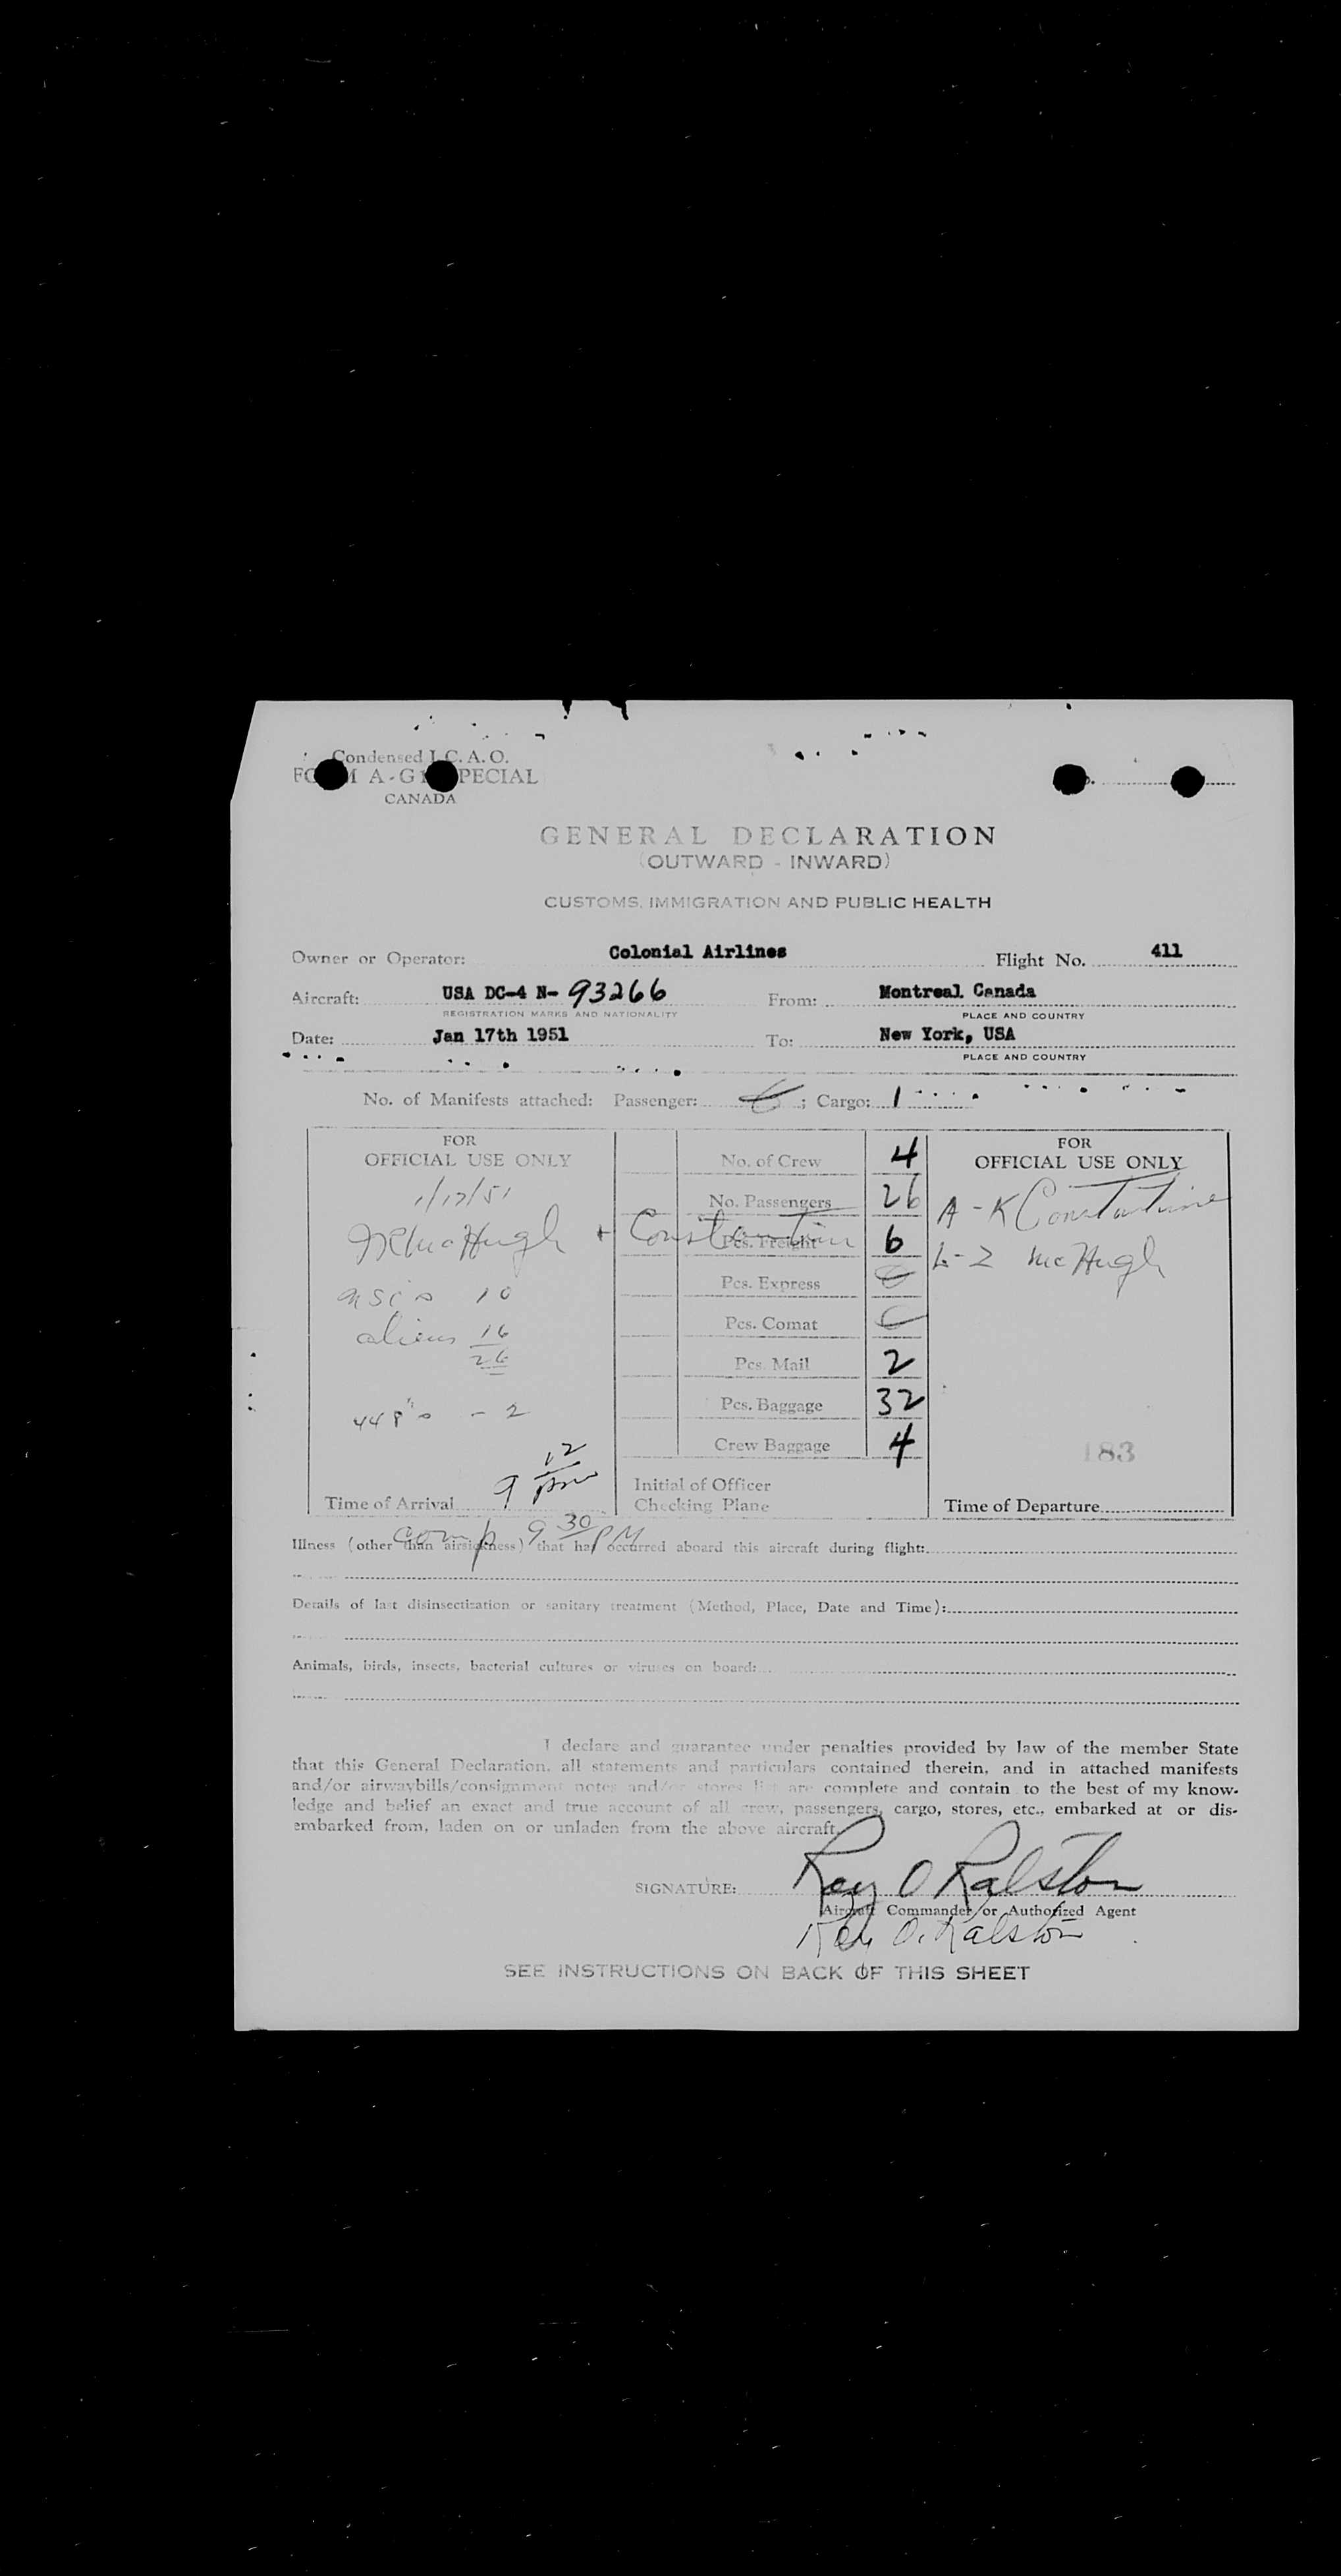 Condensed I.C.A.O.
FORM A-G1 SPECIAL
CANADA
GENERAL DECLARATION
(OUTWARD - INWARD)
CUSTOMS, IMMIGRATION AND PUBLIC HEALTH
Owner or Operator: Colonial Airlines Flight No. 411
Aircraft: USA DC-4 N- 93266 From: Montreal Canada
REGISTRATION MARKS AND NATIONALITY PLACE AND COUNTRY
Date: Jan 17th 1951 To: New York, USA
PLACE AND COUNTRY
No. of Manifests attached: Passenger: ; Cargo: 1
FOR
OFFICIAL USE ONLY
1/17/51
McHugh + Constantine
10
aliens 16
26
448's - 2
Time of Arrival 9 12 pm
No. of Crew 4
No. Passengers 26
Pcs. Freight 6
Pcs. Express
Pcs. Comat
Pcs. Mail 2
Pcs. Baggage 32
Crew Baggage 4
Initial of Officer
Checking Plane
FOR
OFFICIAL USE ONLY
A - K Constantine
L - Z McHugh
183
Time of Departure
comp 9 30 PM
Illness (other than airsickness) that has occurred aboard this aircraft during flight:
Details of last disinsectization or sanitary treatment (Method, Place, Date and Time):
Animals, birds, insects, bacterial cultures or viruses on board:
I declare and guarantee under penalties provided by law of the member State
that this General Declaration, all statements and particulars contained therein, and in attached manifests
and/or airwaybills/consignment notes and/or stores list are complete and contain to the best of my know-
ledge and belief an exact and true account of all crew, passengers, cargo, stores, etc., embarked at or dis-
embarked from, laden on or unladen from the above aircraft.
SIGNATURE: Ray O Ralston
Aircraft Commander or Authorized Agent
Ray O. Ralston
SEE INSTRUCTIONS ON BACK OF THIS SHEET